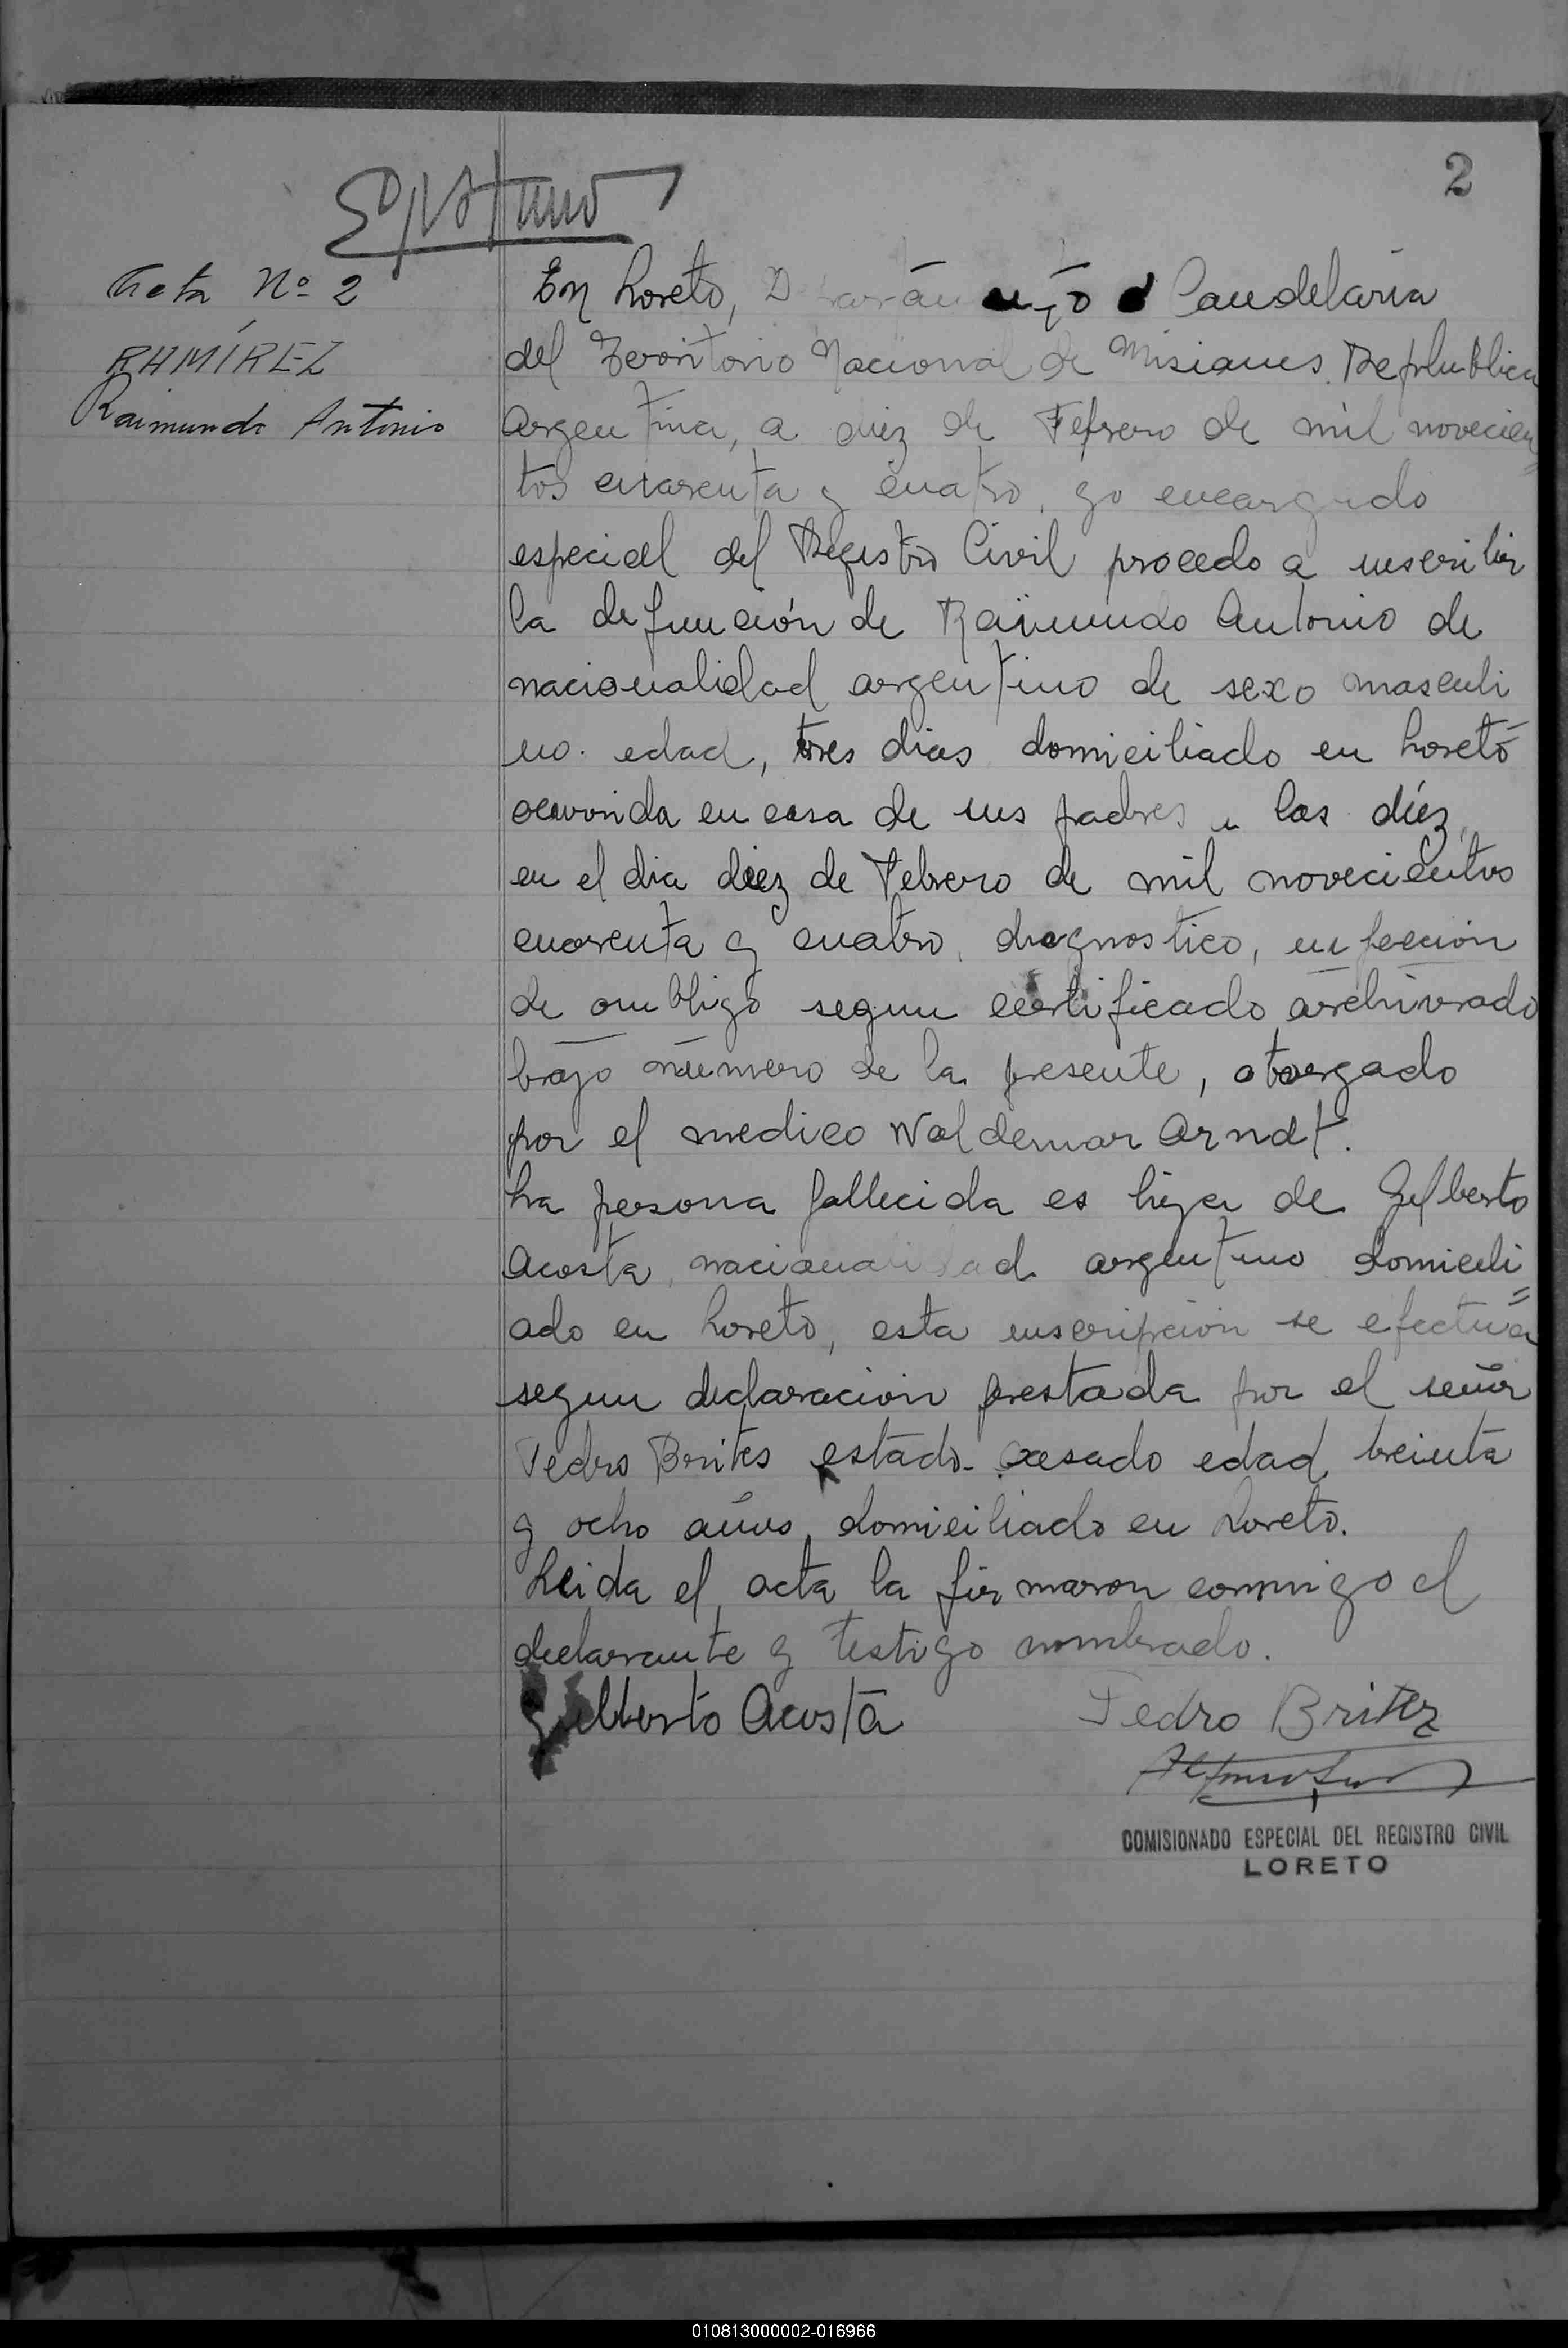 2
Acta Nº 2
RAMÍREZ
Raimundo Antonio
En Loreto, Candelaria
del Territorio Nacional de Misiones Replublica
Argentina, a diez de Febrero de mil novecien=
tos cuarenta y cuatro, yo encargado
especial del Registro Civil procedo a inscribir
la defunción de Raimundo Antonio de
nacionalidad argentino de sexo masculi
no. edad, tres dias domiciliado en Loreto
ocurrida en casa de sus padres a las diéz,
en el dia diez de Febrero de mil novecientos
cuarenta y cuatro, diagnostico, infección
de ombligo segun certificado archivado
bajo número de la presente, otorgado
por el medico Waldemar Arndt.
La persona fallecida es hija de Gilberto
Acosta, nacionalidad argentino domicili=
ado en Loreto, esta inscripción se efectúa
segun declaración prestada por el señor
Pedro Brites estado casado edad, treinta
y ocho años, domiciliado en Loreto.
Leida el acta la firmaron conmigo el
declarante y testigo nombrado.
Gilberto Acosta Pedro Britez
COMISIONADO ESPECIAL DEL REGISTRO CIVIL
LORETO
010813000002-016966